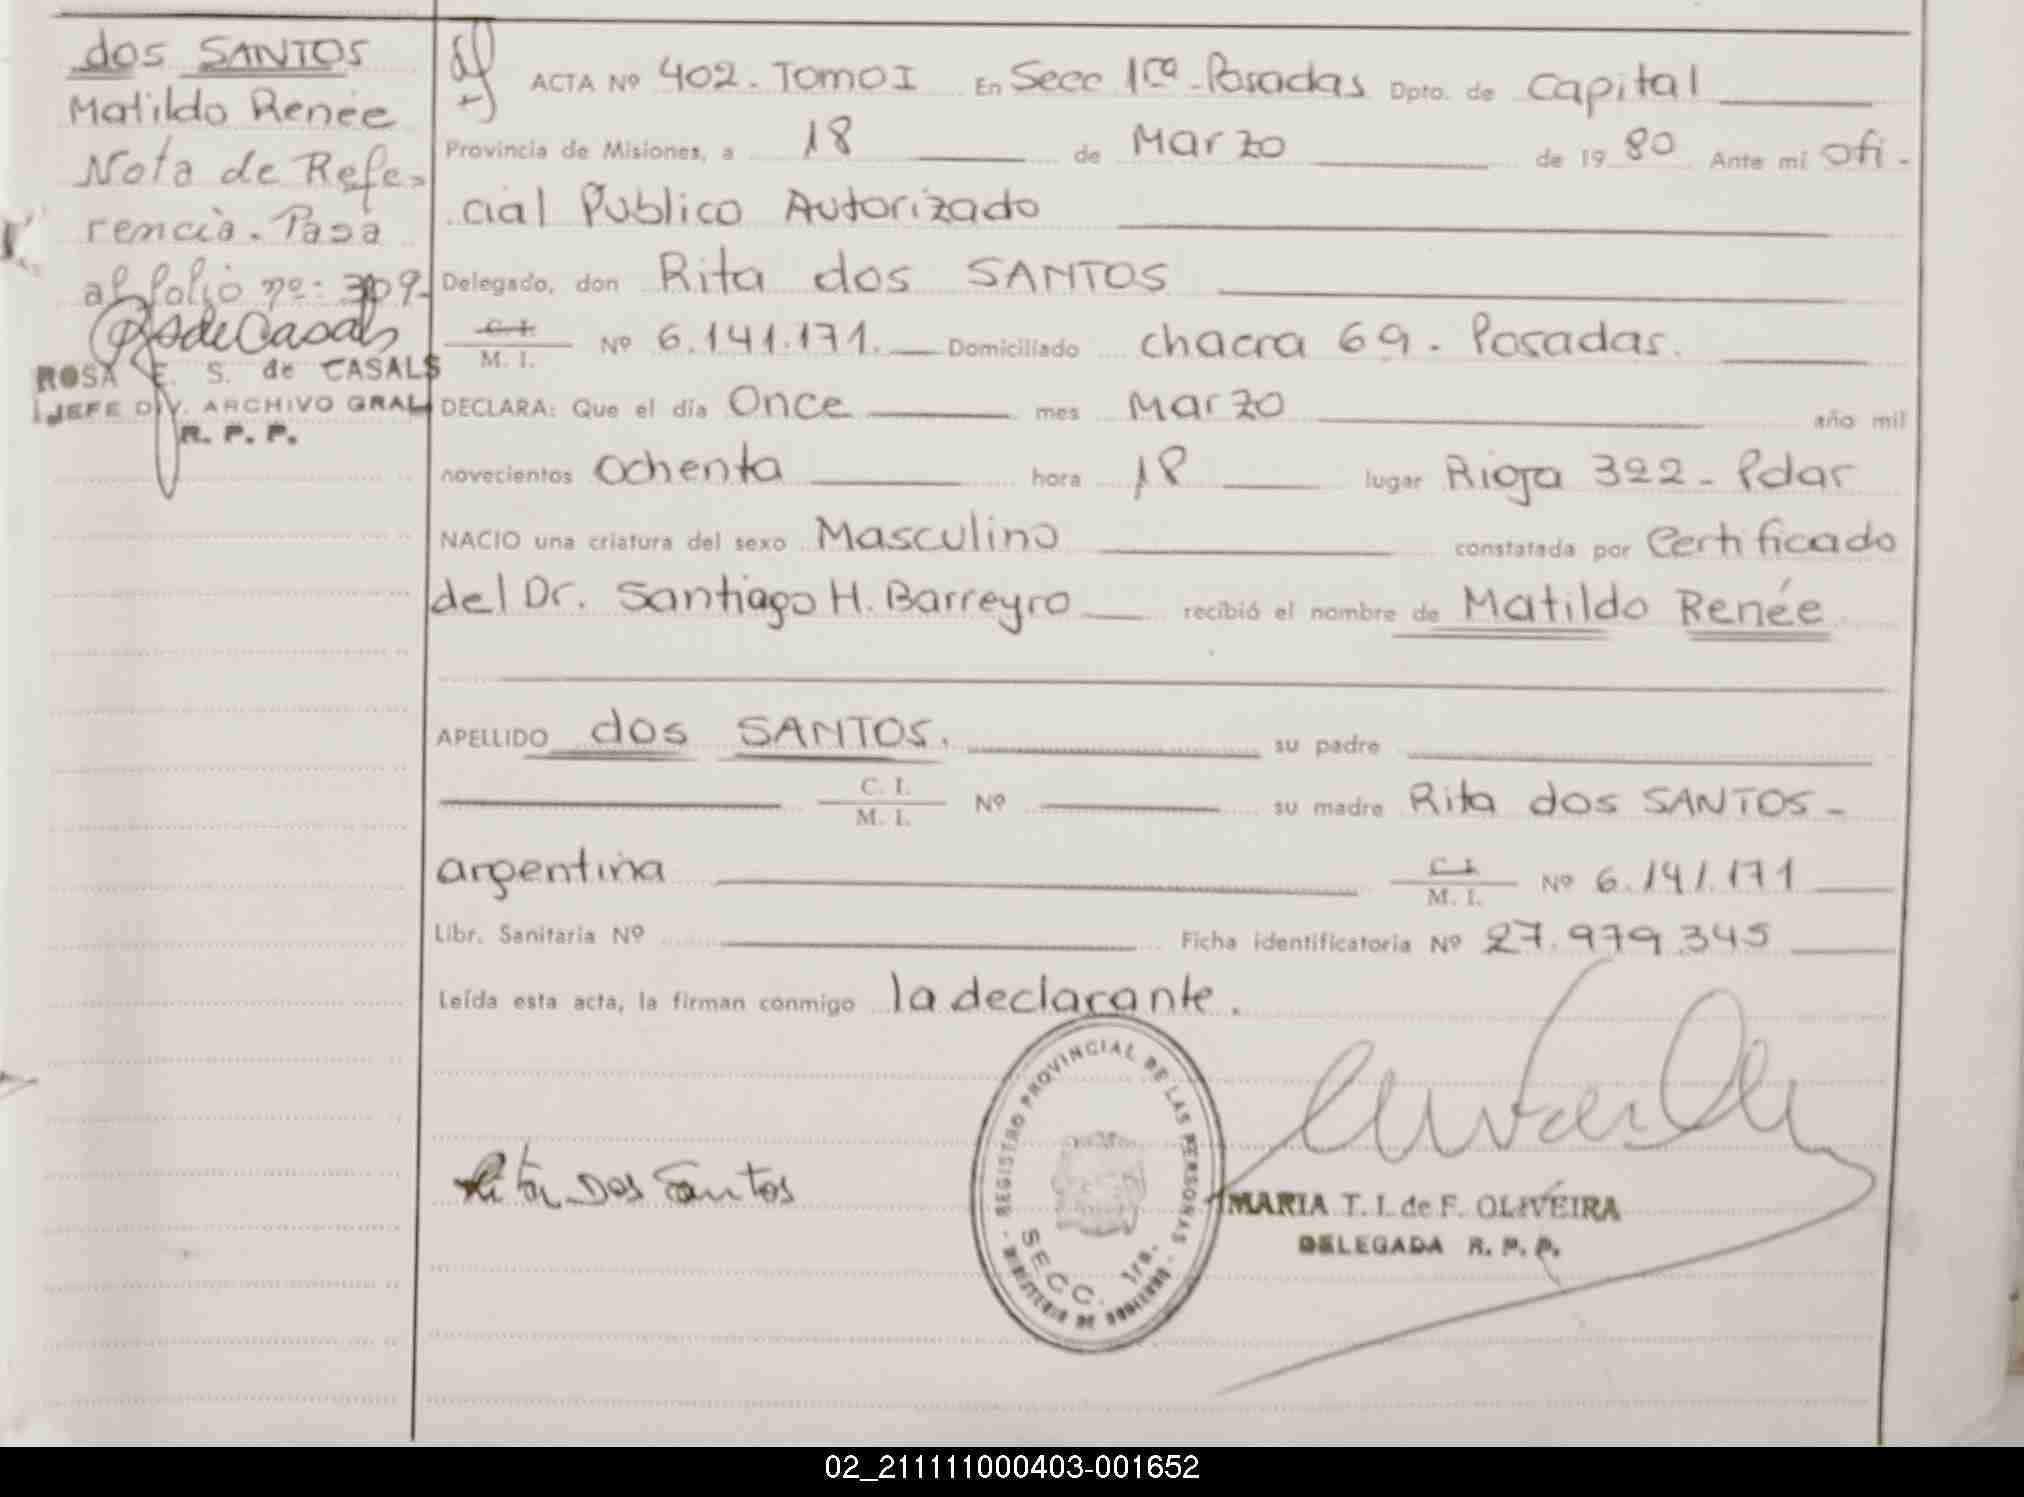 dos SANTOS
Matildo Renée
Nota de Refe-
rencia. Pasa
al folio nº: 309-
ROSA E. S. de CASALS
JEFE DIV. ARCHIVO GRAL
R. P. P.
ACTA Nº 402. TOMO I En Secc 1ra - Posadas Dpto. de Capital
Provincia de Misiones, a 18 de Marzo de 19 80 Ante mi Ofi-
cial Público Autorizado
Delegado, don Rita dos SANTOS
C. I.
M. I. Nº 6.141.171. Domiciliado chacra 69. Posadas.
DECLARA: Que el día Once mes Marzo año mil
novecientos Ochenta hora 18 lugar Rioja 322 - Pdas
NACIO una criatura del sexo Masculino constatada por Certificado
del Dr. Santiago H. Barreyro recibió el nombre de Matildo Renée
APELLIDO dos SANTOS. su padre
C. I.
M. I. Nº su madre Rita dos SANTOS -
argentina C. I.
M. I. Nº 6.141.171
Libr. Sanitaria Nº Ficha identificatoria Nº 27.979.345
Leída esta acta, la firman conmigo la declarante.
REGISTRO PROVINCIAL DE LAS PERSONAS
SECC. 1ra.
MINISTERIO DE GOBIERNO
Rita Dos Santos
MARIA T. I. de F. OLIVEIRA
DELEGADA R. P. P.
02_211111000403-001652